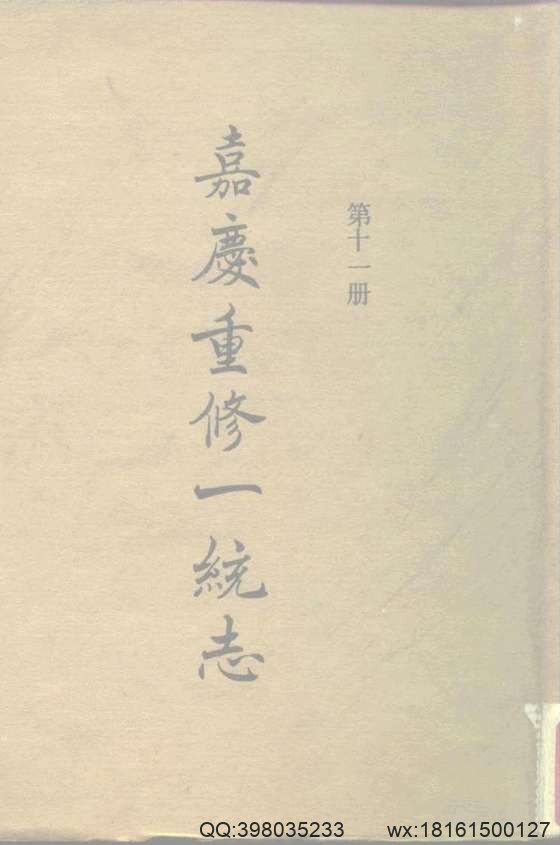 第十一册
嘉慶重修一統志
QQ:398035233 wx:18161500127